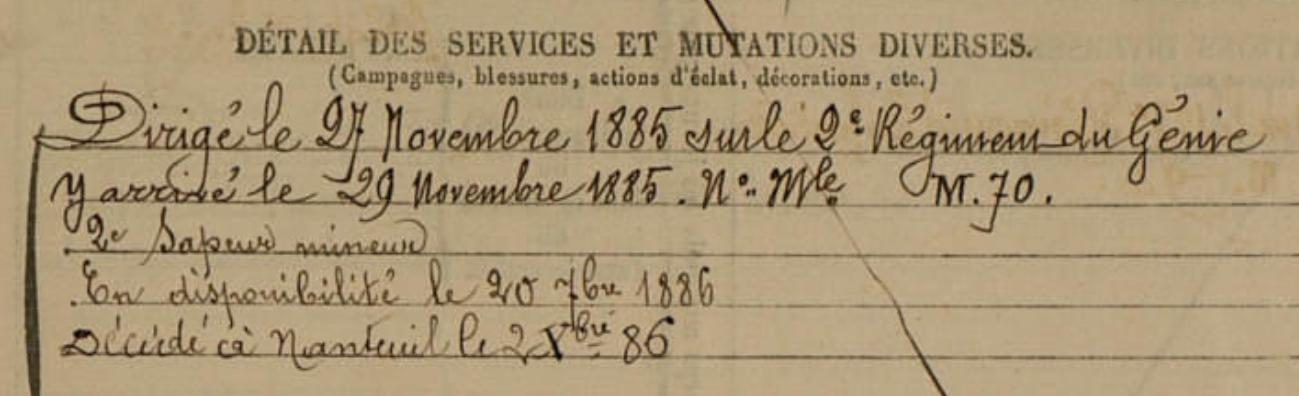 DÉTAIL DES SERVICES ET MUTATIONS DIVERSES.
(Campagnes, blessures, actions d'éclat, décorations, etc.)
Dirigé le 27 Novembre 1885 sur le 2e Régiment du Génie
y arrivé le 29 Novembre 1885. No Mle M.70.
2e Sapeur mineur
En disponibilité le 20 7bre 1886
Décédé à Nanteuil le 2 Xbre 86